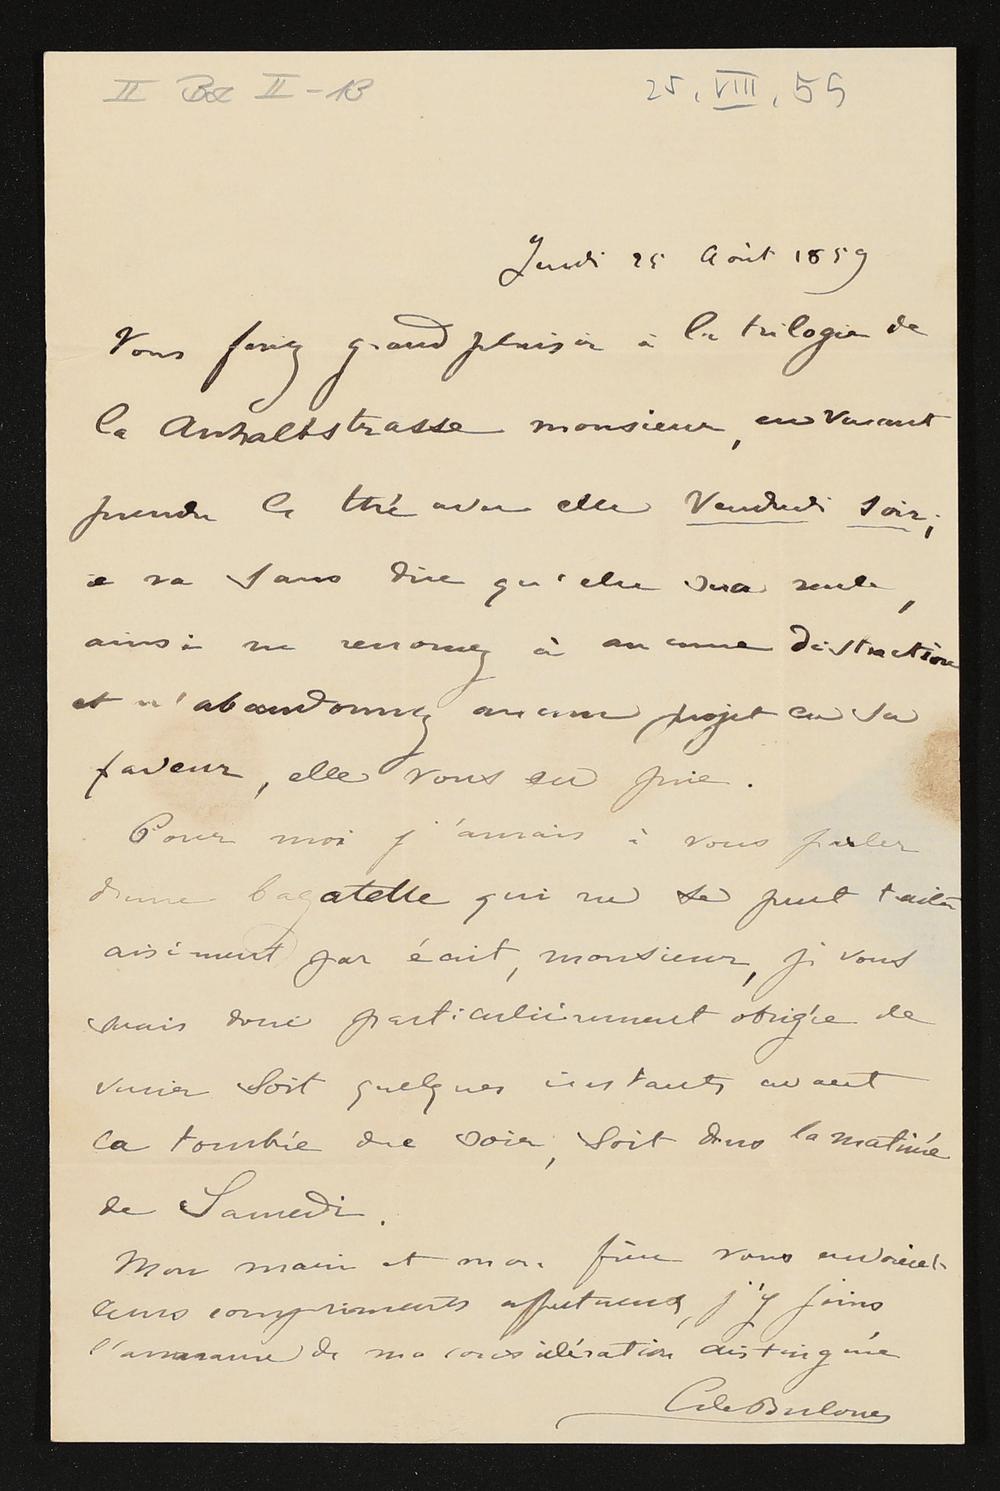 II Bd II-13 25. VIII. 59
Jeudi 25 Août 1859
Vous feriez grand plaisir à la trilogie de
la Anhaltstrasse monsieur, en venant
prendre le thé avec elle Vendredi soir;
il va sans dire qu'elle sera seule,
ainsi ne renoncez à aucune distraction
et n'abandonnez aucun projet en sa
faveur, elle vous en prie.
Pour moi j'aurais à vous parler
d'une bagatelle qui ne se peut traiter
aisément par écrit, monsieur, je vous
serais donc particulièrement obligée de
venir soit quelques instants avant
la tombée du soir, soit dans la matinée
de Samedi.
Mon mari et mon frère vous envoient
leurs compliments affectueux, j'y joins
l'assurance de ma considération distinguée
C de Bulow